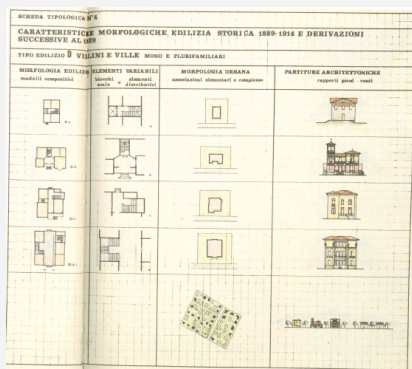 SCHEDA TIPOLOGICA N°4
CARATTERISTICHE MORFOLOGICHE EDILIZIA STORICA 1889-1914 E DERIVAZIONI
SUCCESSIVE AL 1919
TIPO EDILIZIO D VILLINI E VILLE MONO E PLURIFAMILIARI
MORFOLOGIA EDILIZIA
moduli compositivi
ELEMENTI VARIABILI
blocchi scala e elementi distributivi
MORFOLOGIA URBANA
associazioni elementari e complesse
PARTITURE ARCHITETTONICHE
rapporti pieni - vuoti